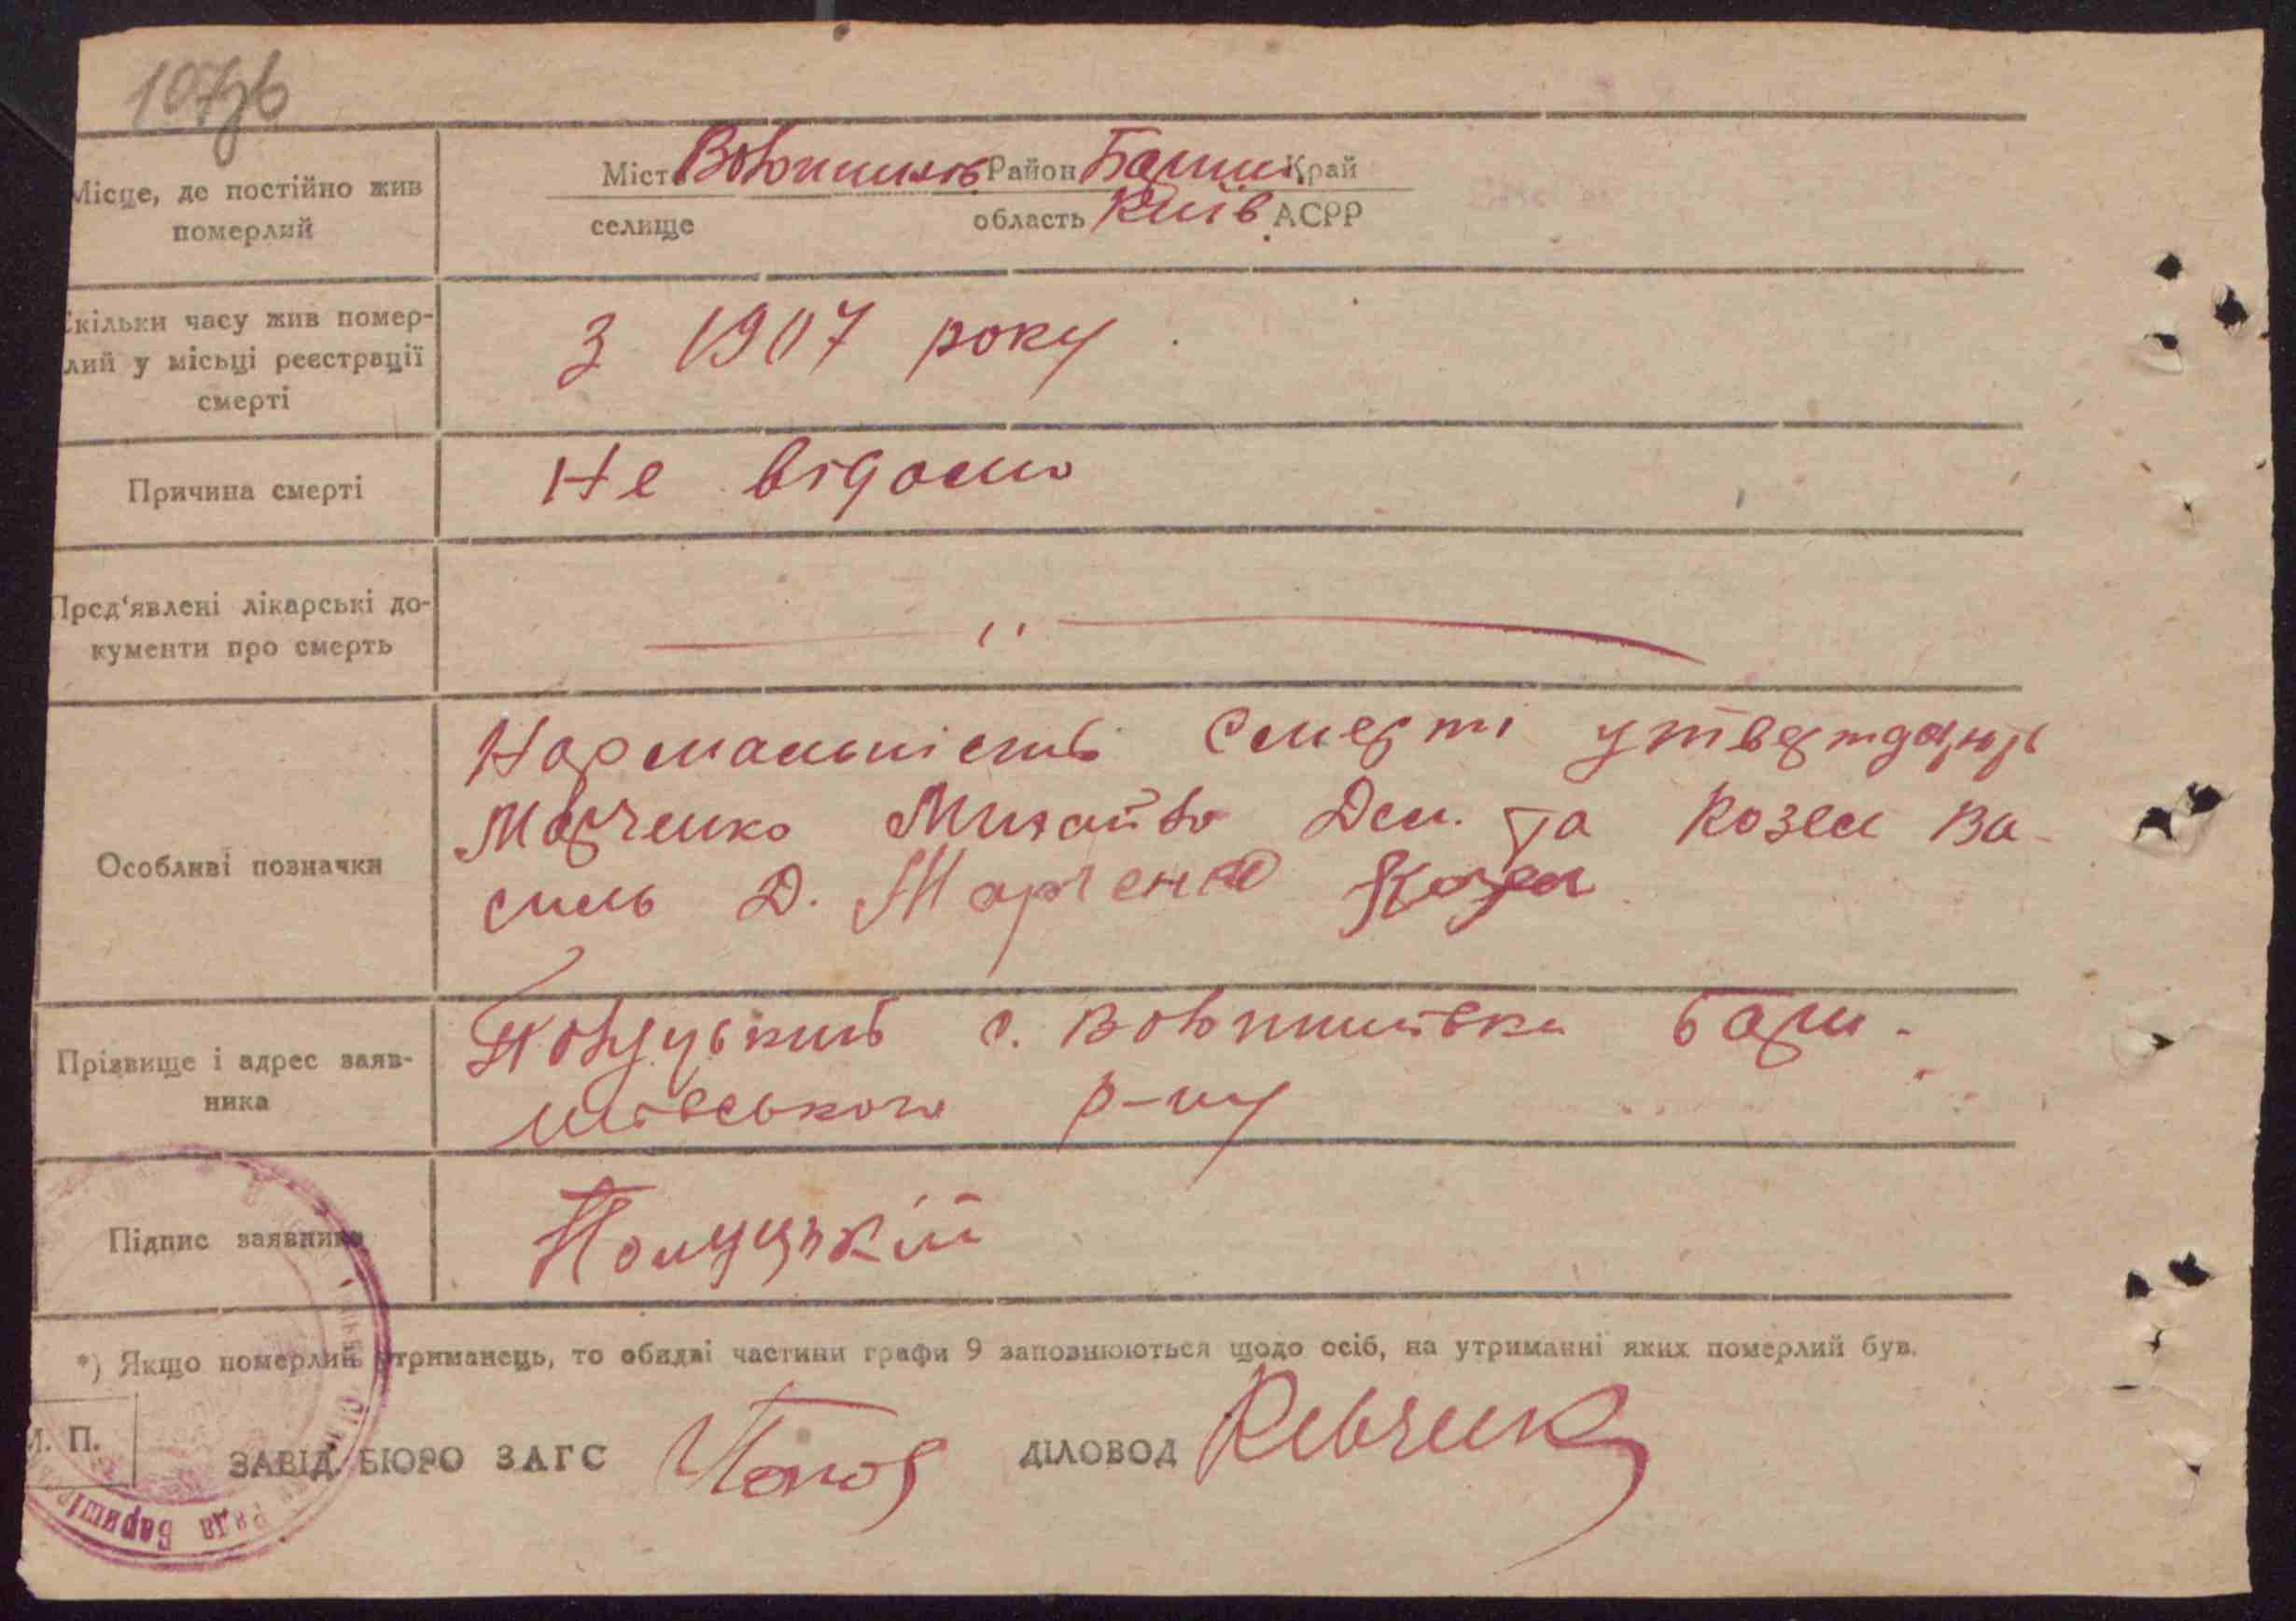 107зв
Місце, де постійно жив
померлий
Місто Волошинів Район Бариш. Край
селище область Київ. АСРР
Скільки часу жив помер-
лий у місьці реєстрації
смерті
З 1907 року
Причина смерті
Не відомо
Пред'явлені лікарські до-
кументи про смерть
— '' —
Особливі позначки
Нормальність смерті утверждають
Марченко Михайло Дем. та Козел Ва-
силь Д. Марченко Козел
Прізвище і адрес заяв-
ника
Полуцький с. Волошинівка Бари-
шівського р-ну
Підпис заявника
Полуцькій
*) Якщо померлий утриманець, то обидві частини графи 9 заповнюються щодо осіб, на утриманні яких померлий був.
М. П.
ЗАВІД. БЮРО ЗАГС ДІЛОВОД
Рада Бариші